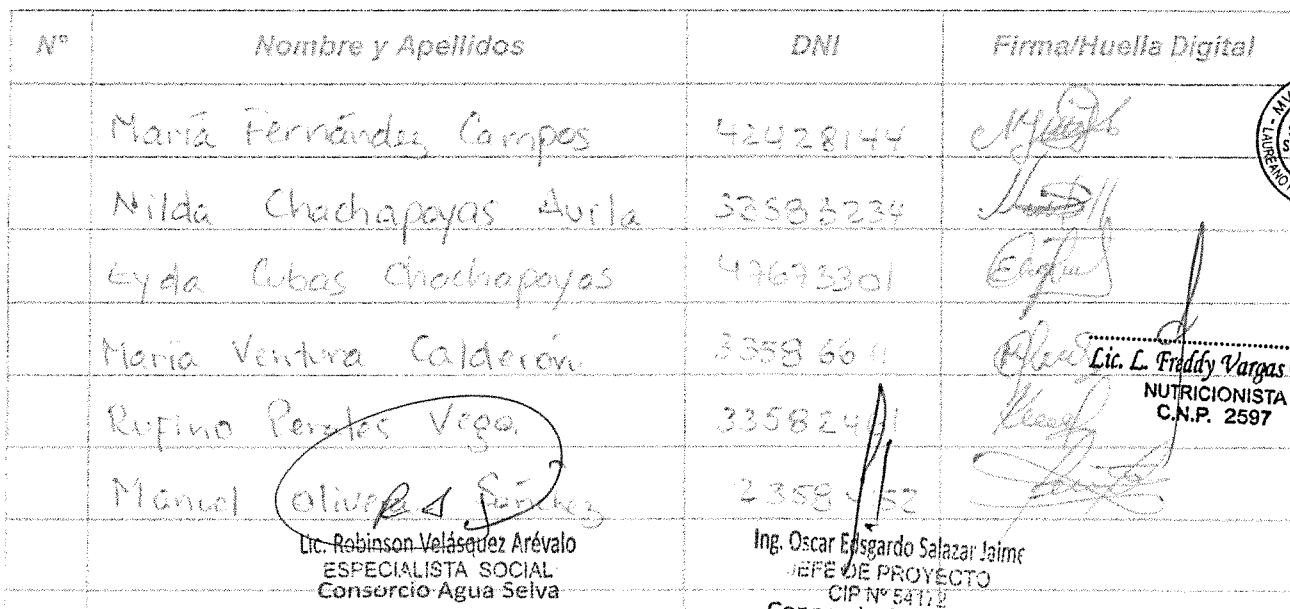 N° Nombre y Apellidos DNI Firma/Huella Digital
María Fernández Campos 42428144
Nilda Chachapoyas Avila 33583234
Eyda Cubas Chachapoyas 47673301
María Ventura Calderón
Rufino Perales Vega
Manuel Olivera Sánchez
Lic. L. Freddy Vargas
NUTRICIONISTA
C.N.P. 2597
Lic. Robinson Velásquez Arévalo
ESPECIALISTA SOCIAL
Consorcio Agua Selva
Ing. Oscar Edsgardo Salazar Jaime
JEFE DE PROYECTO
CIP N°